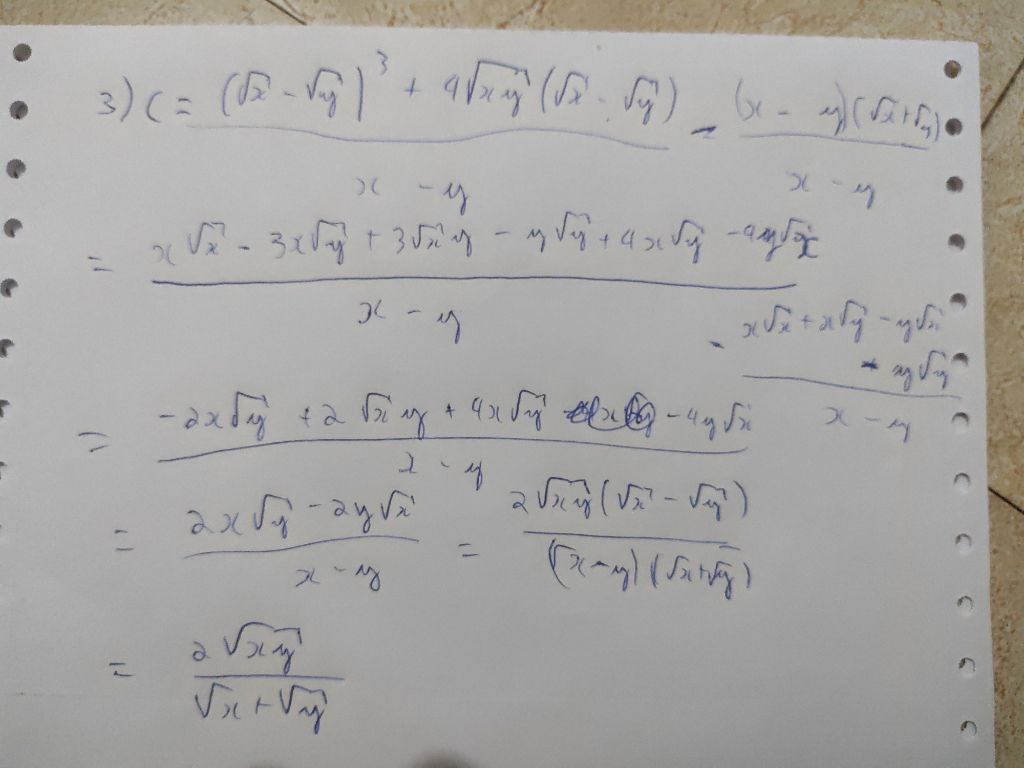 3) C = ((√x - √y)³ + 4√xy (√x - √y)) / (x - y) - ((x - y)(√x + √y)) / (x - y)
= (x√x - 3x√y + 3√x y - y√y + 4x√y - 4y√x) / (x - y) - (x√x + x√y - y√x - y√y) / (x - y)
= (-2x√y + 2√x y + 4x√y - 4y√x) / (x - y)
= (2x√y - 2y√x) / (x - y) = (2√xy (√x - √y)) / ((√x - y)(√x + √y))
= 2√xy / (√x + √y)